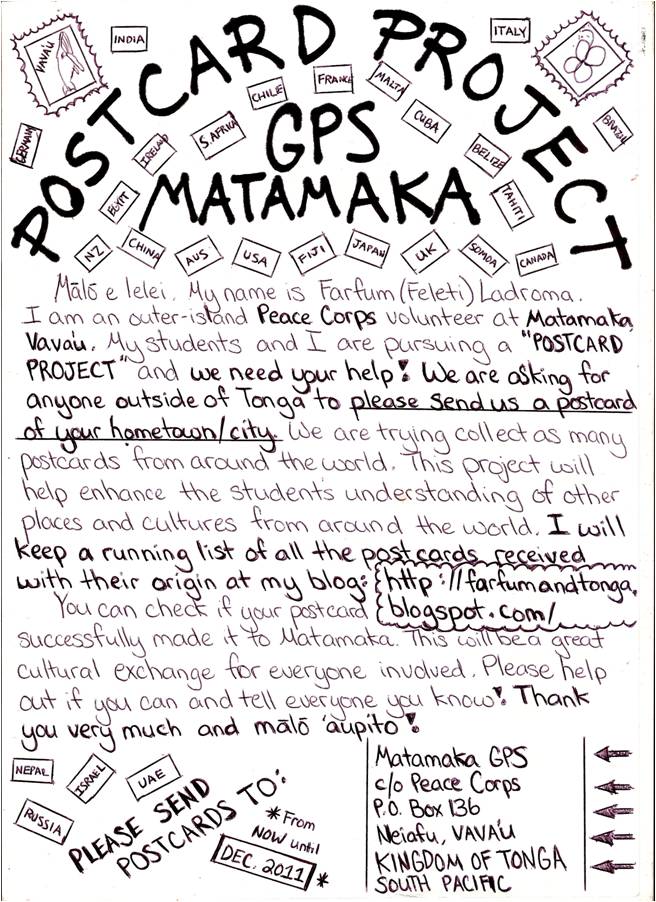 POSTCARD PROJECT
GPS
MATAMAKA
VAVA'U
INDIA
ITALY
GERMANY
IRELAND
S.AFRICA
CHILE
FRANCE
MALTA
CUBA
BELIZE
BRAZIL
EGYPT
TAHITI
NZ
CHINA
AUS
USA
FIJI
JAPAN
UK
SAMOA
CANADA
Mālō e lelei. My name is Farfum (Feleti) Ladroma.
I am an outer-island Peace Corps volunteer at Matamaka,
Vava'u. My students and I are pursuing a "POSTCARD
PROJECT" and we need your help! We are asking for
anyone outside of Tonga to please send us a postcard
of your hometown/city. We are trying collect as many
postcards from around the world. This project will
help enhance the students understanding of other
places and cultures from around the world. I will
keep a running list of all the postcards received
with their origin at my blog: http://farfumandtonga.
You can check if your postcard blogspot.com/
successfully made it to Matamaka. This will be a great
cultural exchange for everyone involved. Please help
out if you can and tell everyone you know! Thank
you very much and mālō 'aupito!
NEPAL
ISRAEL
UAE
RUSSIA
PLEASE SEND
POSTCARDS TO:
*From
NOW until
DEC. 2011*
Matamaka GPS
c/o Peace Corps
P.O. Box 136
Neiafu, VAVA'U
KINGDOM OF TONGA
SOUTH PACIFIC